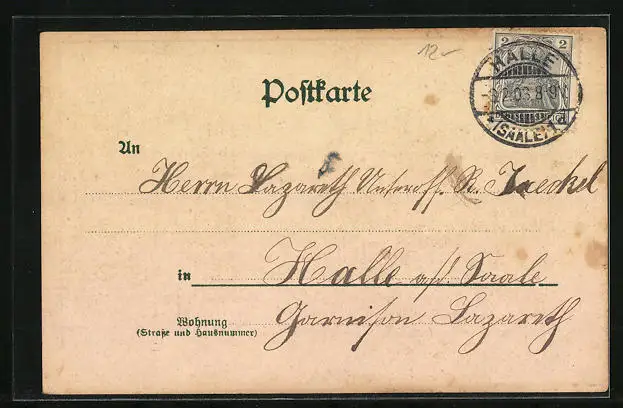 12-
2 2
HALLE
2.03.8-9V
*(SAALE)1d
Postkarte
An
Herrn Lazareth Unteroff. Jaeckel
in Halle a/d Saale
Wohnung
(Straße und Hausnummer)
Garnison Lazareth